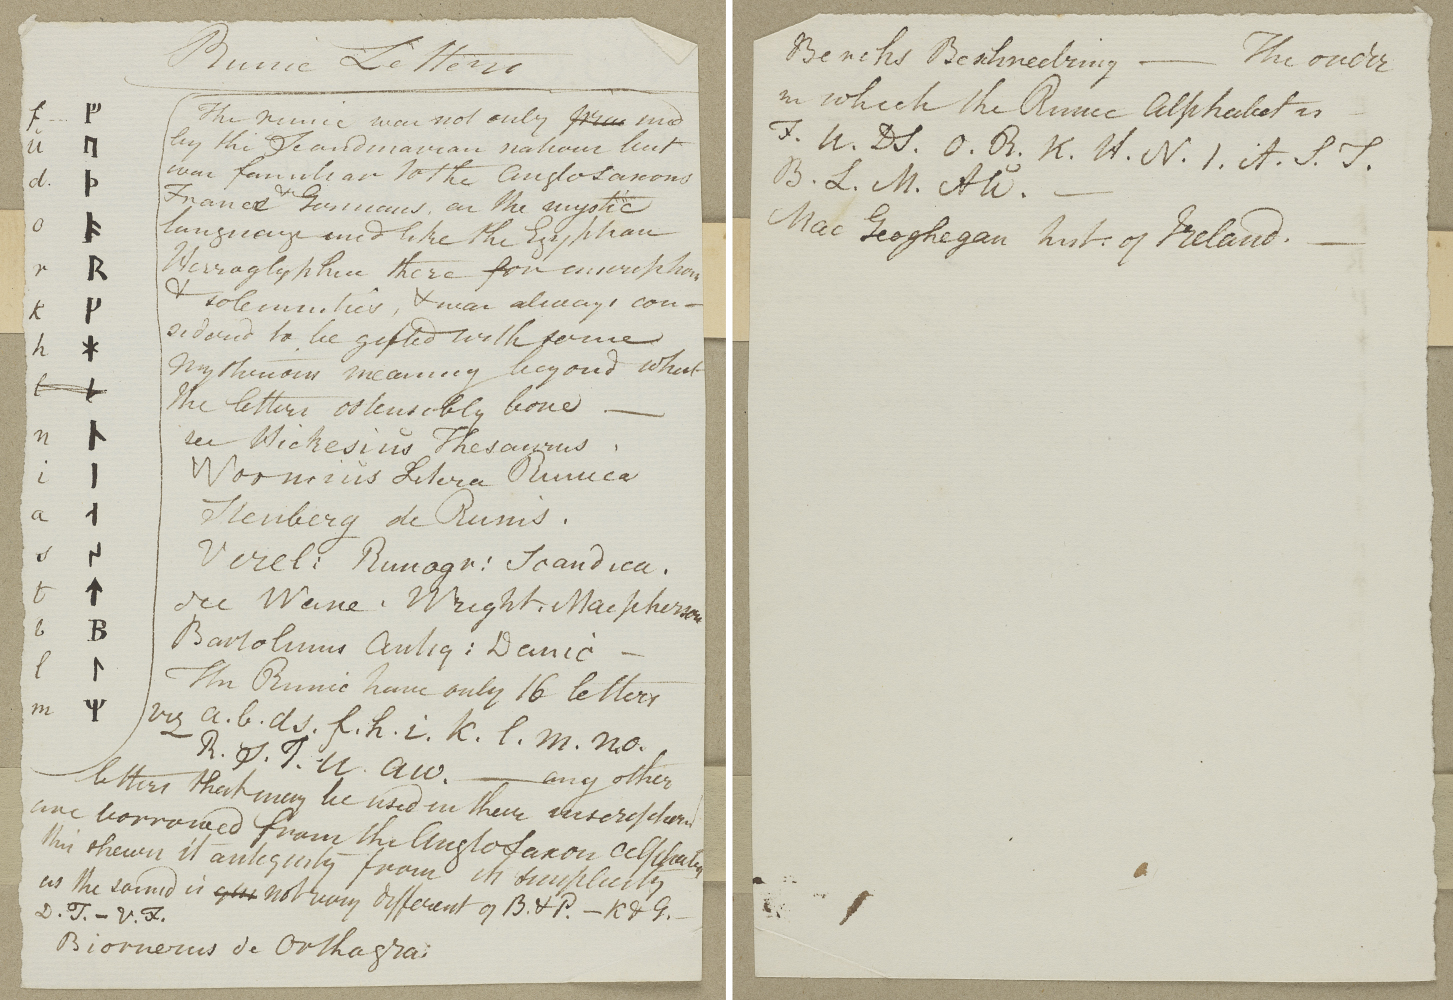 Runic Letters
f ᚠ
u ᚢ
d. ᚦ
o ᚨ
r ᚱ
k ᚴ
h ᚼ
n ᚾ
i ᛁ
a ᛆ
s
t ᛏ
b ᛒ
l ᛚ
m ᛘ
The runic was not only used
by the Scandinavian nations but
was familiar to the Anglosaxons
France & Germans, as the mystic
language and like the Egyptian
there for inscriptions
& solemnities, & was always con-
sidered to be gifted with some
mysterious meaning beyond what
the letters ostensibly bore —
see Hickesius Thesaurus.
Wormius Litera Runica
Stenberg de Runis.
Verel: Runogr: Scandica.
see Wright. Macpherson
Bartolinus Antiq: Danic —
The Runic have only 16 letters
viz a. b. ds. f. h. i. k. l. m. no.
R. S. T. U. aw. — any other
letters that may be used in their inscriptions
are borrowed from the Anglosaxon alphabet
this shews it antiquity from its simplicity
as the sound is not very different of B. & P. – K & G. –
D. T. – V. F.
Biornerus de Orthagra:
The order
in which the Runic Alphabet is
F. U. DS. O. R. K. H. N. I. A. S. T.
B. L. M. AW. —
Mac Geoghegan hist. of Ireland. —